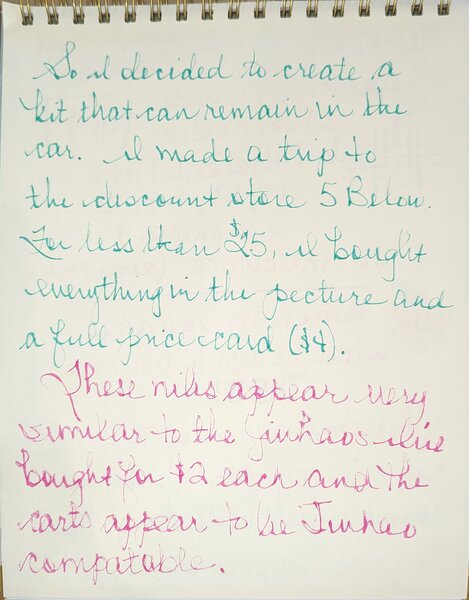 So I decided to create a
kit that can remain in the
car. I made a trip to
the discount store 5 Below.
For less than $25, I bought
everything in the pecture and
a full price card ($4).
These nibs appear very
similar to the Jinhaos I've
bought for $2 each and the
carts appear to be Jinhao
compatable.